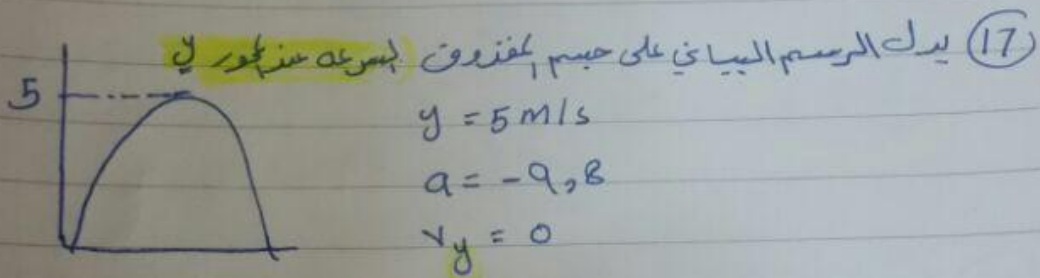 (17) يدل الرسم البياني على جسم المقذوف السرعه عند المحور y
5
y = 5 m/s
a = -9,8
vy = 0